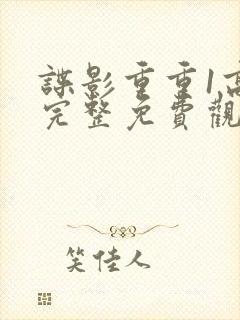 諜影重重1高
完整免費觀
笑佳人